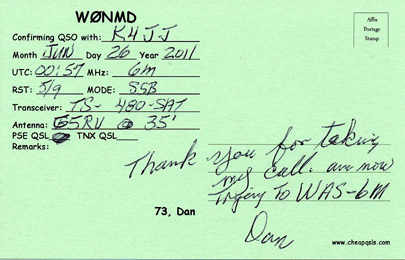 WØNMD
Affix
Postage
Stamp
Confirming QSO with: K4JJ
Month JUN Day 26 Year 2011
UTC: 00:57 MHz: 6m
RST: 5/9 MODE: SSB
Transceiver: TS-480-SAT
Antenna: G5RV @ 35'
PSE QSL TNX QSL
Remarks:
Thank you for taking
my call. are now
trying to WAS-6M
73, Dan
Dan
www.cheapqsls.com